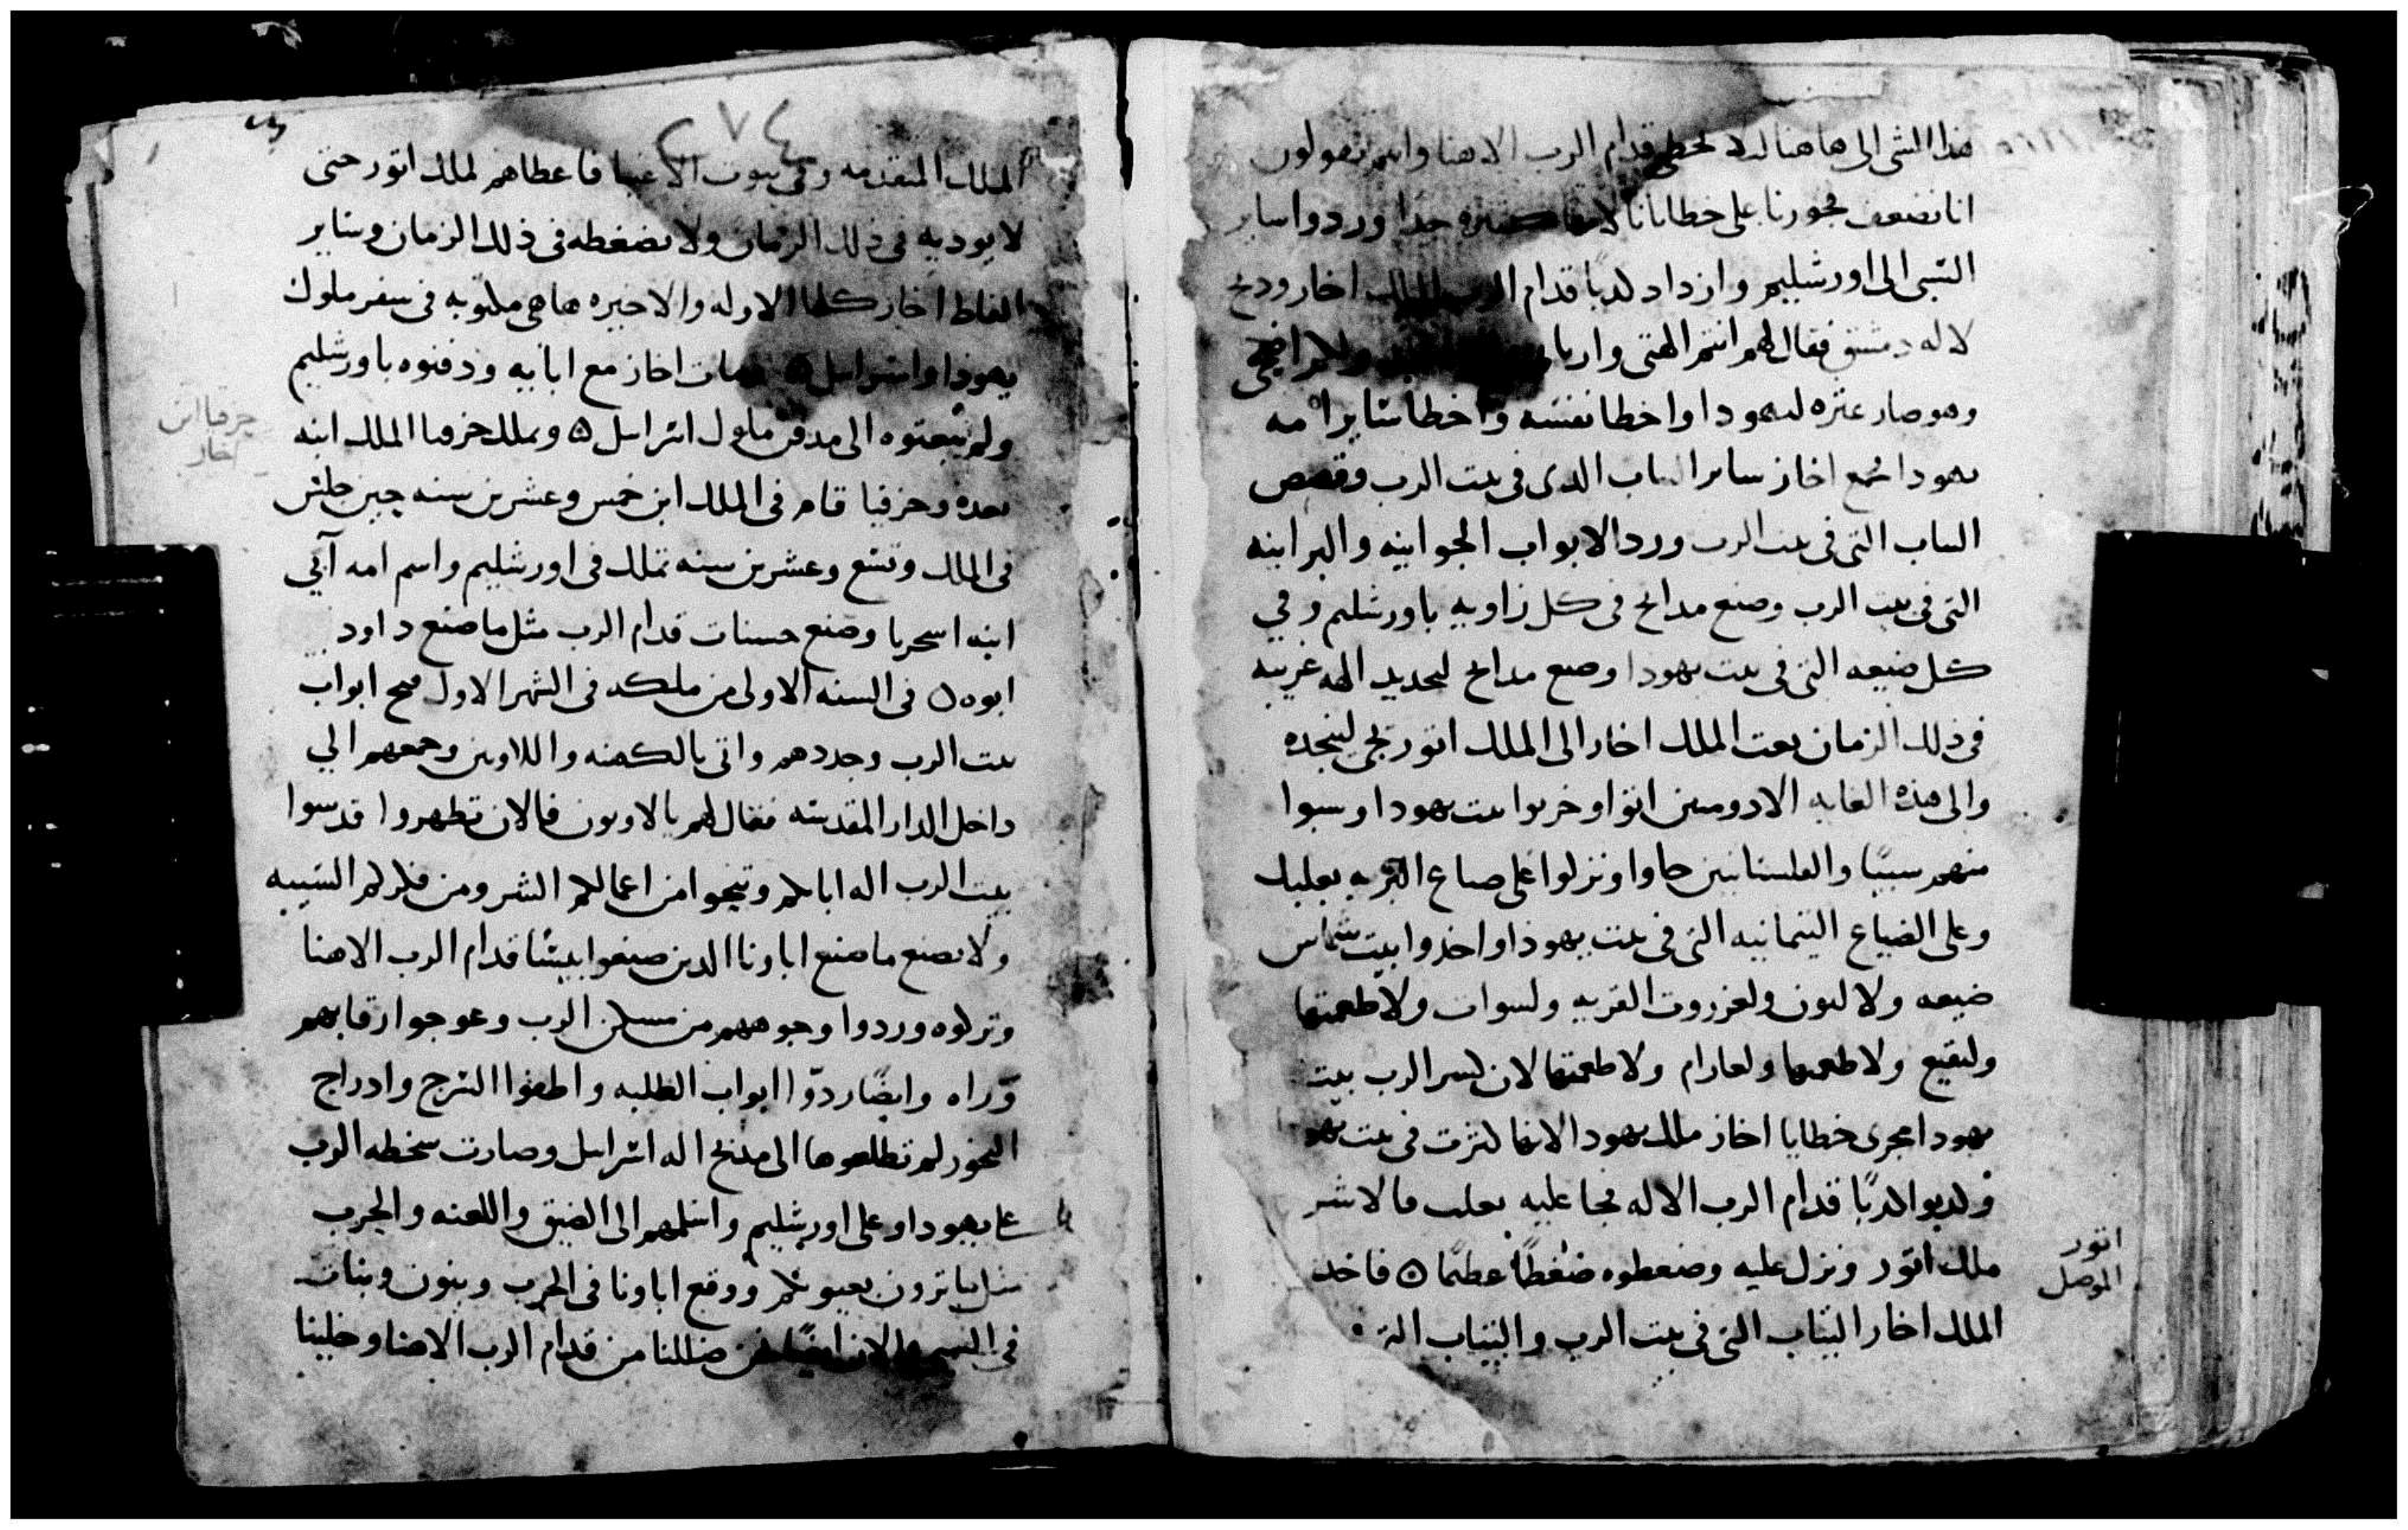 هذا الشى الى هاهنا ليلا نخطى قدام الرب الاهنا وانتم تقولون
انا نضعف فجورنا على خطايانا لانها كثيره جدا وردوا ساير
السبى الى اورشليم وازداد كدبًا قدام الرب الملك اخاز ودبح
لاله دمشق فقال لهم انتم الهتى واربابى
وهو صار عثره ليهودا واخطا نفسه واخطا ساير امه
يهودا جمع اخاز ساير التياب الدى فى بيت الرب وقصص
التياب التى فى بيت الرب ورد الابواب الجوانيه والبرانيه
التى فى بيت الرب وصنع مدابح فى كل زاويه باورشليم وفي
كل ضيعه التى فى بيت يهودا وصنع مدابح لتجديد الهه غريبه
فى ذلك الزمان بعت الملك اخاز الى الملك اتور يجى لينجده
والى هذه الغايه الادوميين اتوا وخربوا بيت يهودا وسبوا
منهم سبيًا والفلستانيين جاوا ونزلوا على ضياع البريه بعلبك
وعلى الضياع اليتمانيه التى فى بيت يهودا واخدوا بيت شماس
ضيعه ولالون ولغزروت القريه ولسوات ولاطعمتها
ولبقيع ولاطعمها ولعارام ولاطعمتها لان كسر الرب بيت
يهودا مجرى خطايا اخاز ملك يهود الانها كترت فى بيت يهو
وكدبوا كدبًا قدام الرب الاله فجا عليه بعلب فالاشر
ملك اتور ونزل عليه وضغطوه ضغطًا عظمًا ۞ فاخد
الملك اخاز التياب التى فى بيت الرب والتياب التى
اتور
الموصل
٢٧٤
الملك المتقدمه وفى بيوت الاغنيا فاعطاهم لملك اتور حتى
لا يوديه فى ذلك الزمان ولا يضغطه فى ذلك الزمان وساير
الفاظ اخاز كلها الاوله والاخيره هاهى مكتوبه فى سفر ملوك
يهودا واسراييل ۞ ومات اخاز مع ابايه ودفنوه باورشليم
ولم يبعتوه الى مدفن ملوك اسراييل ۞ وملك حزقيا الملك ابنه
بعده وحزقيا قام فى الملك ابن خمس وعشرين سنه حين جلس
فى الملك وتسع وعشرين سنه تملك فى اورشليم واسم امه آبي
ابنه اسحريا وصنع حسنات قدام الرب مثل ما صنع داود
ابوه ۞ فى السنه الاولى من ملكه فى الشهر الاول فتح ابواب
بيت الرب وجددهم واتى بالكهنه واللاويين وجمعهم الي
داخل الدار المقدسه فقال لهم يالاويون فالان تطهروا قدسوا
بيت الرب اله ابايكم وتنجوا من اعمالكم الشر ومن فكركم السييه
ولا نصنع ما صنع اباونا الدين صنعوا بيسًا قدام الرب الاهنا
وتركوه وردوا وجوههم من مسكن الرب وعوجوا رقابهم
وراه وايضًا ردّوا ابواب الظلبه واطفوا السرج وادراج
البخور لم تطلعوها الى مدبح اله اسراييل وصارت سخطه الرب
على يهودا وعلى اورشليم واسلمهم الى الضيق واللعنه والحرب
مثل ما ترون بعيونكم ووقع اباونا فى الحرب وبنون وبنات
فى السبى والان ايضًا نحن ضللنا من قدام الرب الاهنا وخلينا
حزقيا ابن
اخاز